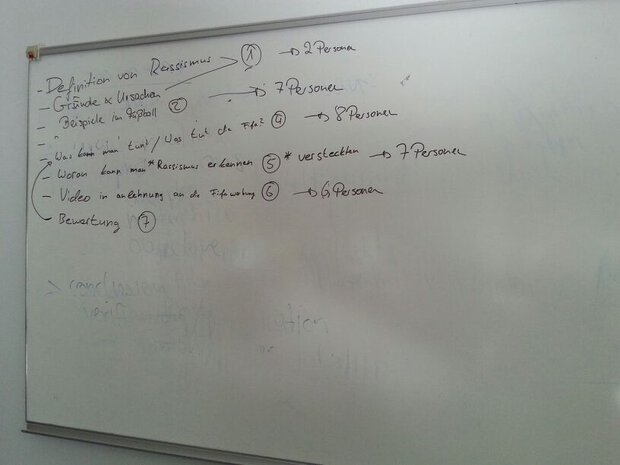 - Definition von Rassismus ① → 2 Personen
- Gründe & Ursachen
- Beispiele im Fußball ② → 7 Personen
- "
- Was kann man tun? / Was tut die Fifa? ④ → 8 Personen
- Woran kann man * Rassismus erkennen ⑤ * versteckten → 7 Personen
- Video in anlehnung an die Fifawerbung ⑥ → 6 Personen
Bewertung ⑦